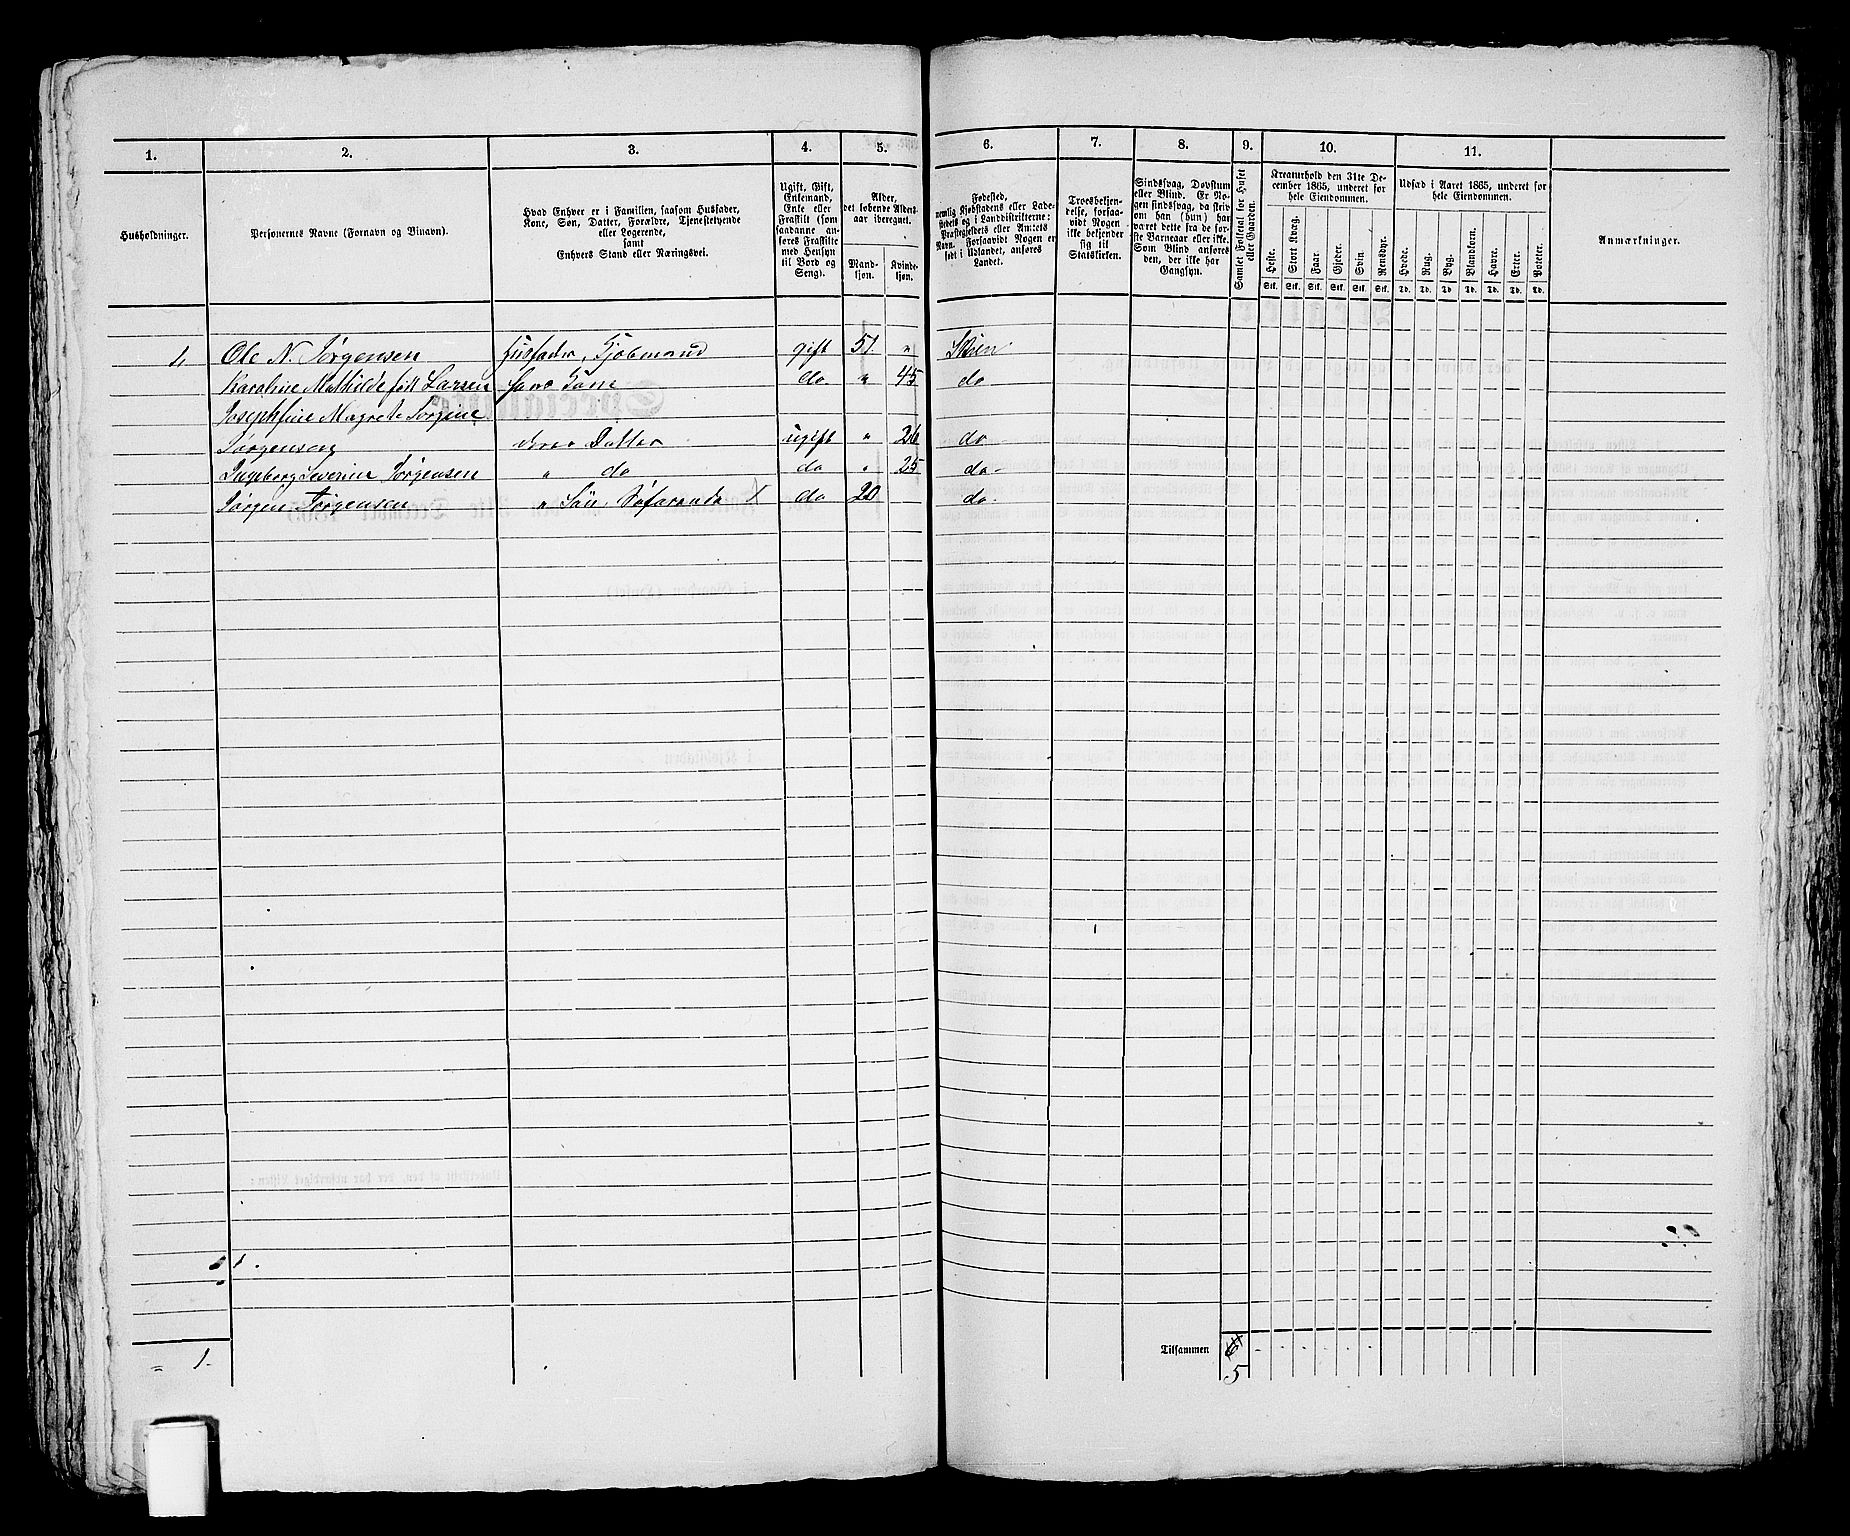 1. 2. 3. 4. 5. 6. 7. 8. 9. 10. 11.
Husholdninger.
Personernes Navne (Fornavn og Binavn).
Hvad Enhver er i Familien, saasom Husfader,
Kone, Søn, Datter, Forældre, Tjenestetyende
eller Logerende,
samt
Enhvers Stand eller Næringsvei.
Ugift, Gift,
Enkemand,
Enke eller
Fraskilt (som
saadanne an-
føres Fraskilte
med Hensyn
til Bord og
Seng).
Alder,
det løbende Alders-
aar iberegnet.
Mand-
kjøn.
Kvinde-
kjøn.
Fødested,
nemlig Kjøbstadens eller Lade-
stedets og i Landdistrikterne:
Præstegjeldets eller Amtets
Navn. Forsaavidt Nogen er
født i Udlandet, anføres
Landet.
Troesbekjen-
delse, forsaa-
vidt Nogen
ikke bekjender
sig til
Statskirken.
Sindssvag, Døvstum
eller Blind. Er No-
gen sindssvag, da skriv
om han (hun) har
været dette fra de før-
ste Barneaar eller ikke.
Som Blind anføres
den, der ikke har
Gangsyn.
Samlet Folketal for Huset
eller Gaarden.
Kreaturhold den 31te De-
cember 1865, underet for
hele Eiendommen.
Heste. Stort Kvæg. Faar. Gjeder. Svin. Rensdyr.
Stk. Stk. Stk. Stk. Stk. Stk.
Udsæd i Aaret 1865, underet for
hele Eiendommen.
Hvede. Rug. Byg. Blandkorn. Havre. Erter. Poteter.
Td. Td. Td Td. Td. Td. Td.
Anmærkninger.
1, Ole N. Jørgensen Husfader, Kjøbmand gift 51 " Skien
Karoline Mathilde født Larsen hans Kone do. " 45 do
Josephine Magrete Jørgine
Jørgensen deres Datter ugift " 26 do
Ingeborg Severine Jørgensen " do do " 25 do-
Jørgen Jørgensen " Søn, Søfarende X do 20 do.
= 1.
Tilsammen 6
5